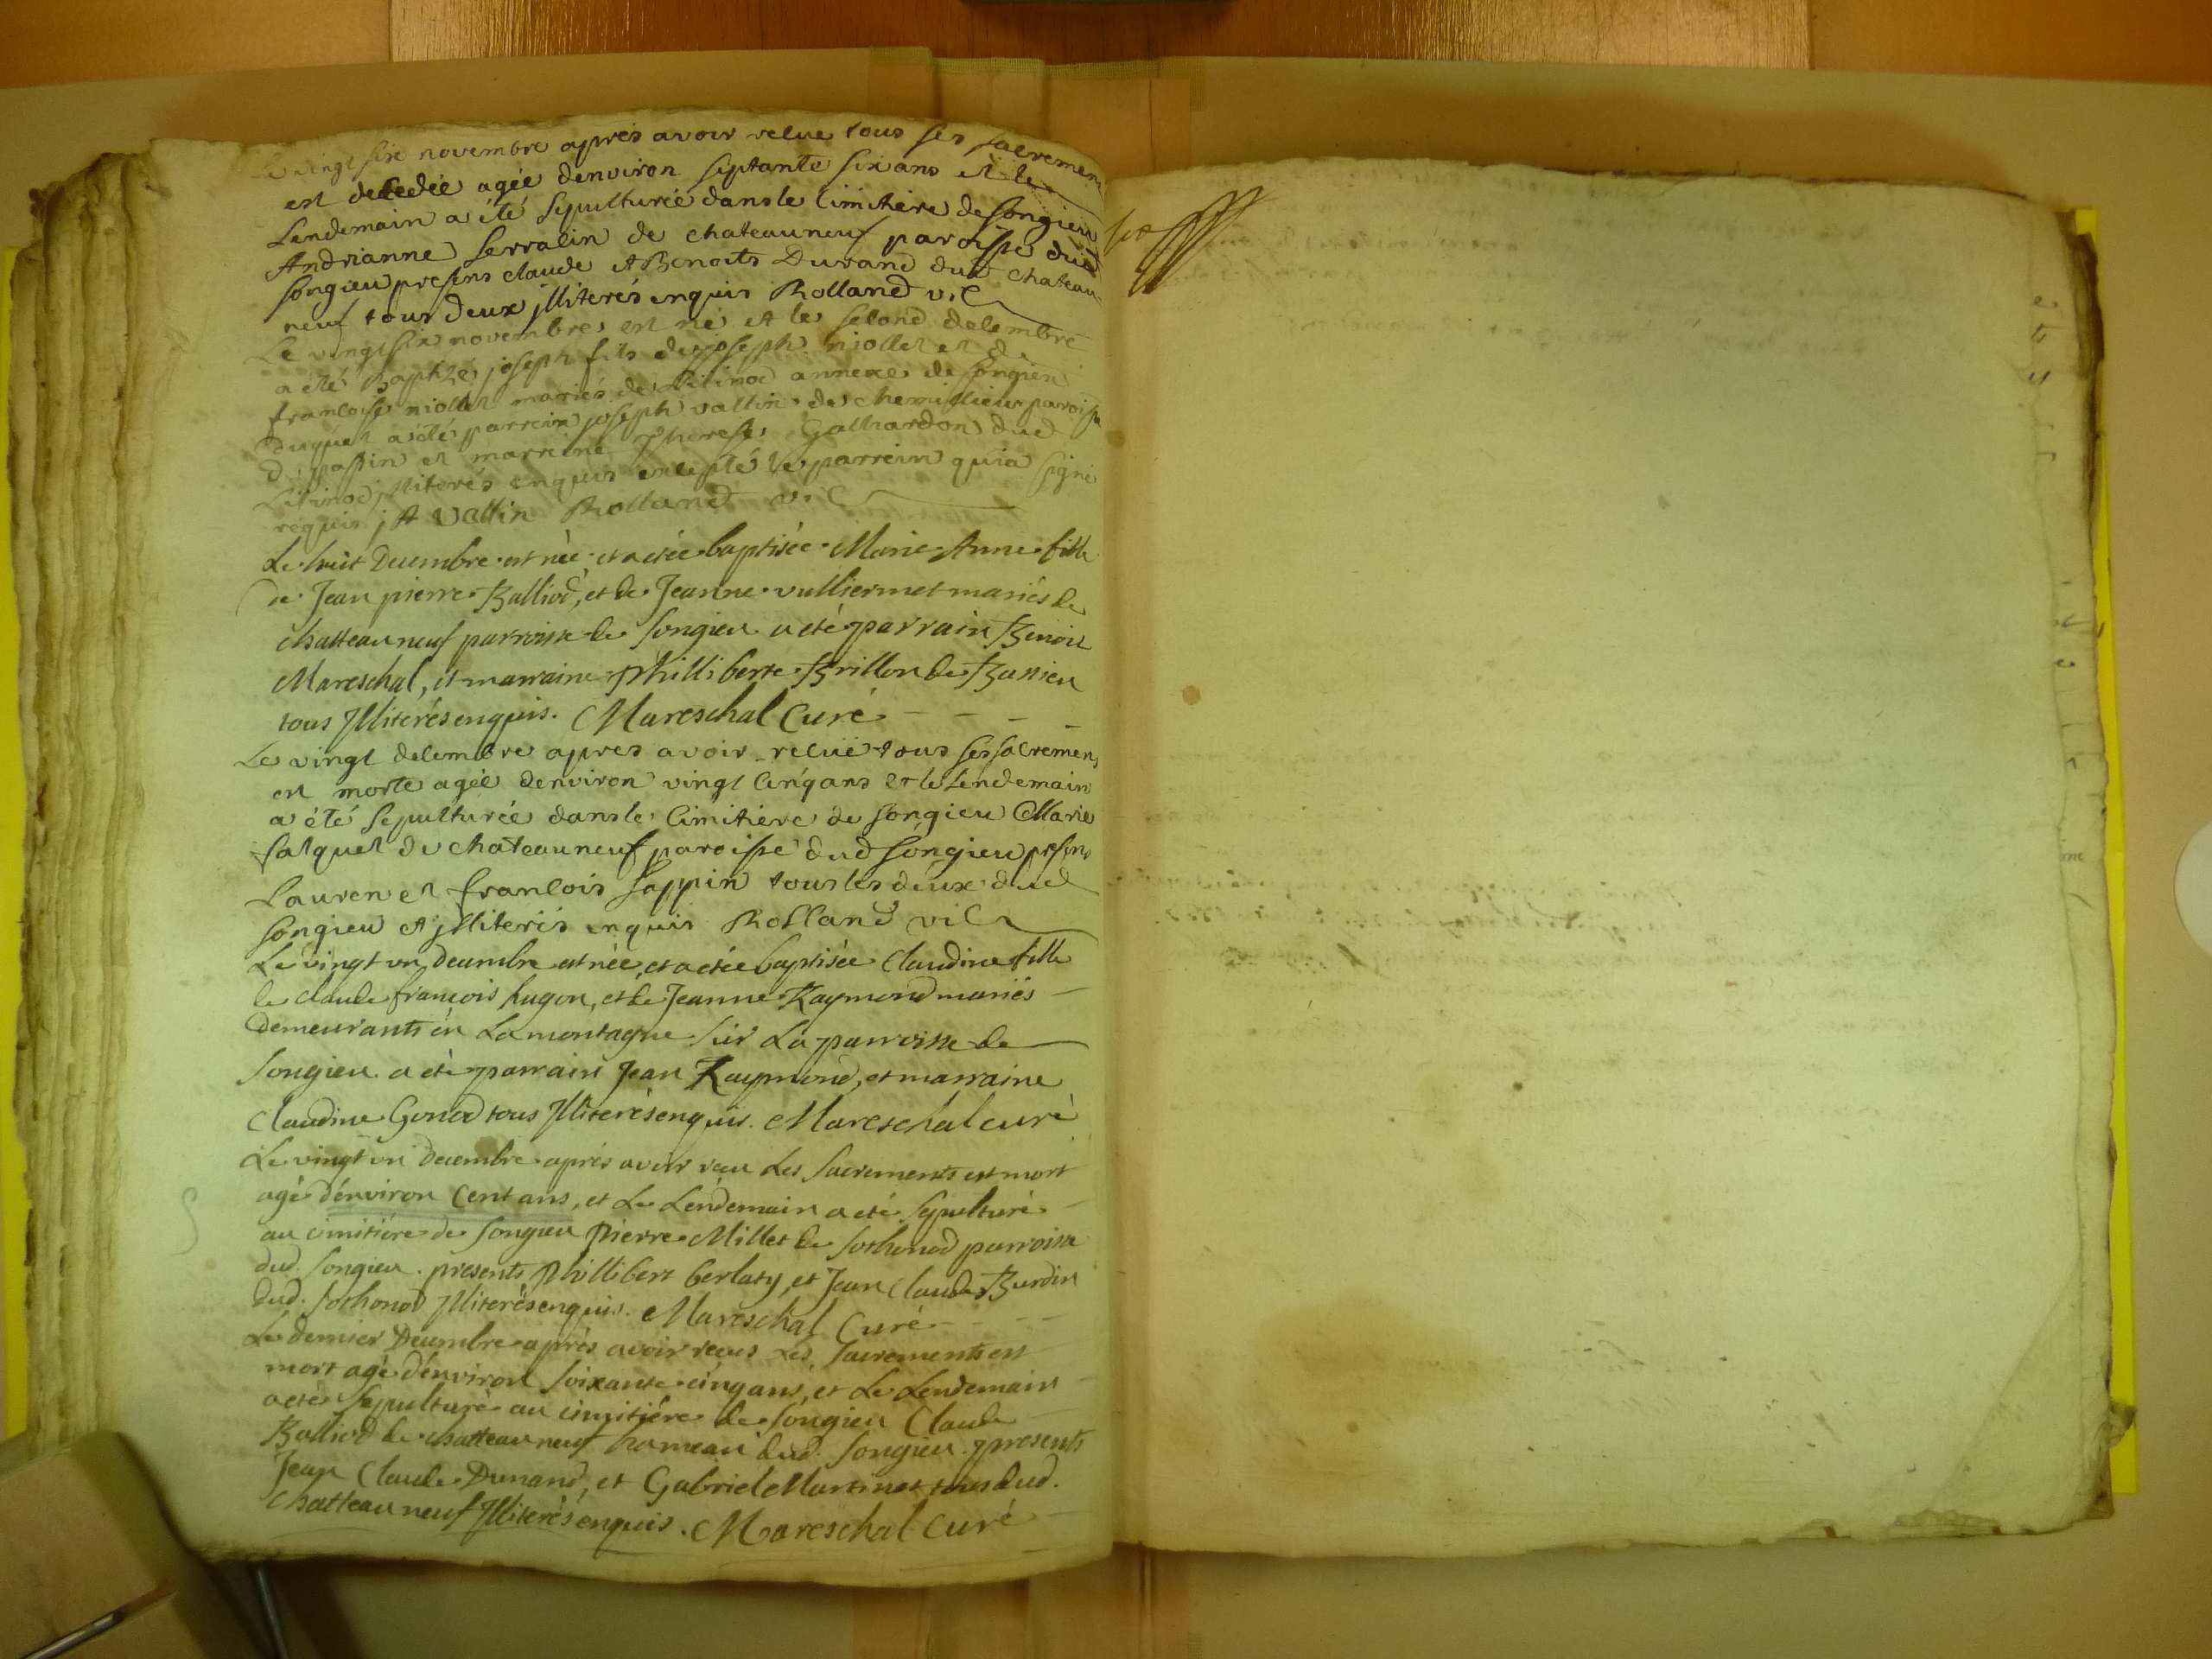 Le vingt six novembre apres avoir relue tous ses sacremens
est decedée agée denviron septante six ans et le
Lendemain a été sepulturée dans le cimitiere de songieu
Andrianne serralin de chateauneuf paroisse dud
songieu presens claude et Benoits Durand dud chateau
neuf tous deux jlliterés enquis Rolland vic
Le vingt six novembre est né et le second decembre
a été Baptizé joseph fils de joseph niollet et de
francoise niollet mariés de annexe de songieu
duquel a été parrein joseph vallin de chemillieu paroisse
de passin et marreine Therese Galliardon dud
jlliterés enquis excepté le parrein qui a signé
requis j A vallin Rolland vic
Le huit Decembre est née et a étée baptisée Marie Anne fille
de Jean pierre Balliod, et de Jeanne vulliermet mariés de
chatteauneuf parroisse de songieu a eté parrain Benoit
Mareschal, et marraine Philliberte Brillon de Bassieu
tous Jlliterés enquis. Mareschal Curé
Le vingt decembre apres avoir reçuë tous ses sacremens
est morte agée denviron vingt cinq ans et le Lendemain
a été sepulturée dans le cimitiere de songieu Marie
falquet de chateauneuf paroisse dud songieu presens
Lauren et francois sappin tous les deux dud
songieu et jlliterés enquis Rolland vic
Le vingt un decembre est née, et a étée baptisée Claudine fille
de claude françois hugon, et de Jeanne Raymond mariés
demeurants en La montagne sur La parroisse de
songieu. a eté parrain Jean Raymond, et marraine
Claudine Gonod tous Jlliterés enquis. Mareschal curé
Le vingt un decembre après avoir reçu Les sacrements est mort
agé d'environ Cent ans, et Le Lendemain a eté sepulturé
au cimitiére de songieu Pierre Millet de sothonod parroisse
dud. songieu. presents Phillibert berlaty, et Jean Claude Burdin
dud. sothonod Jlliterés enquis. Mareschal Curé
Le dernier Decembre après avoir reçus Les sacrements est
mort agé d'environ soixante cinq ans, et Le Lendemain
a eté sepulturé au cimitiére de songieu Claude
Balliod de chatteauneuf hameau dud. songieu. presents
Jean Claude Dunand, et Gabriel Martinet tous dud.
chatteauneuf Jlliterés enquis. Mareschal Curé